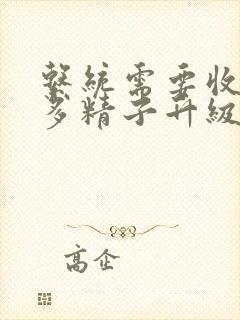 繫統需要收
多精子升級
高企